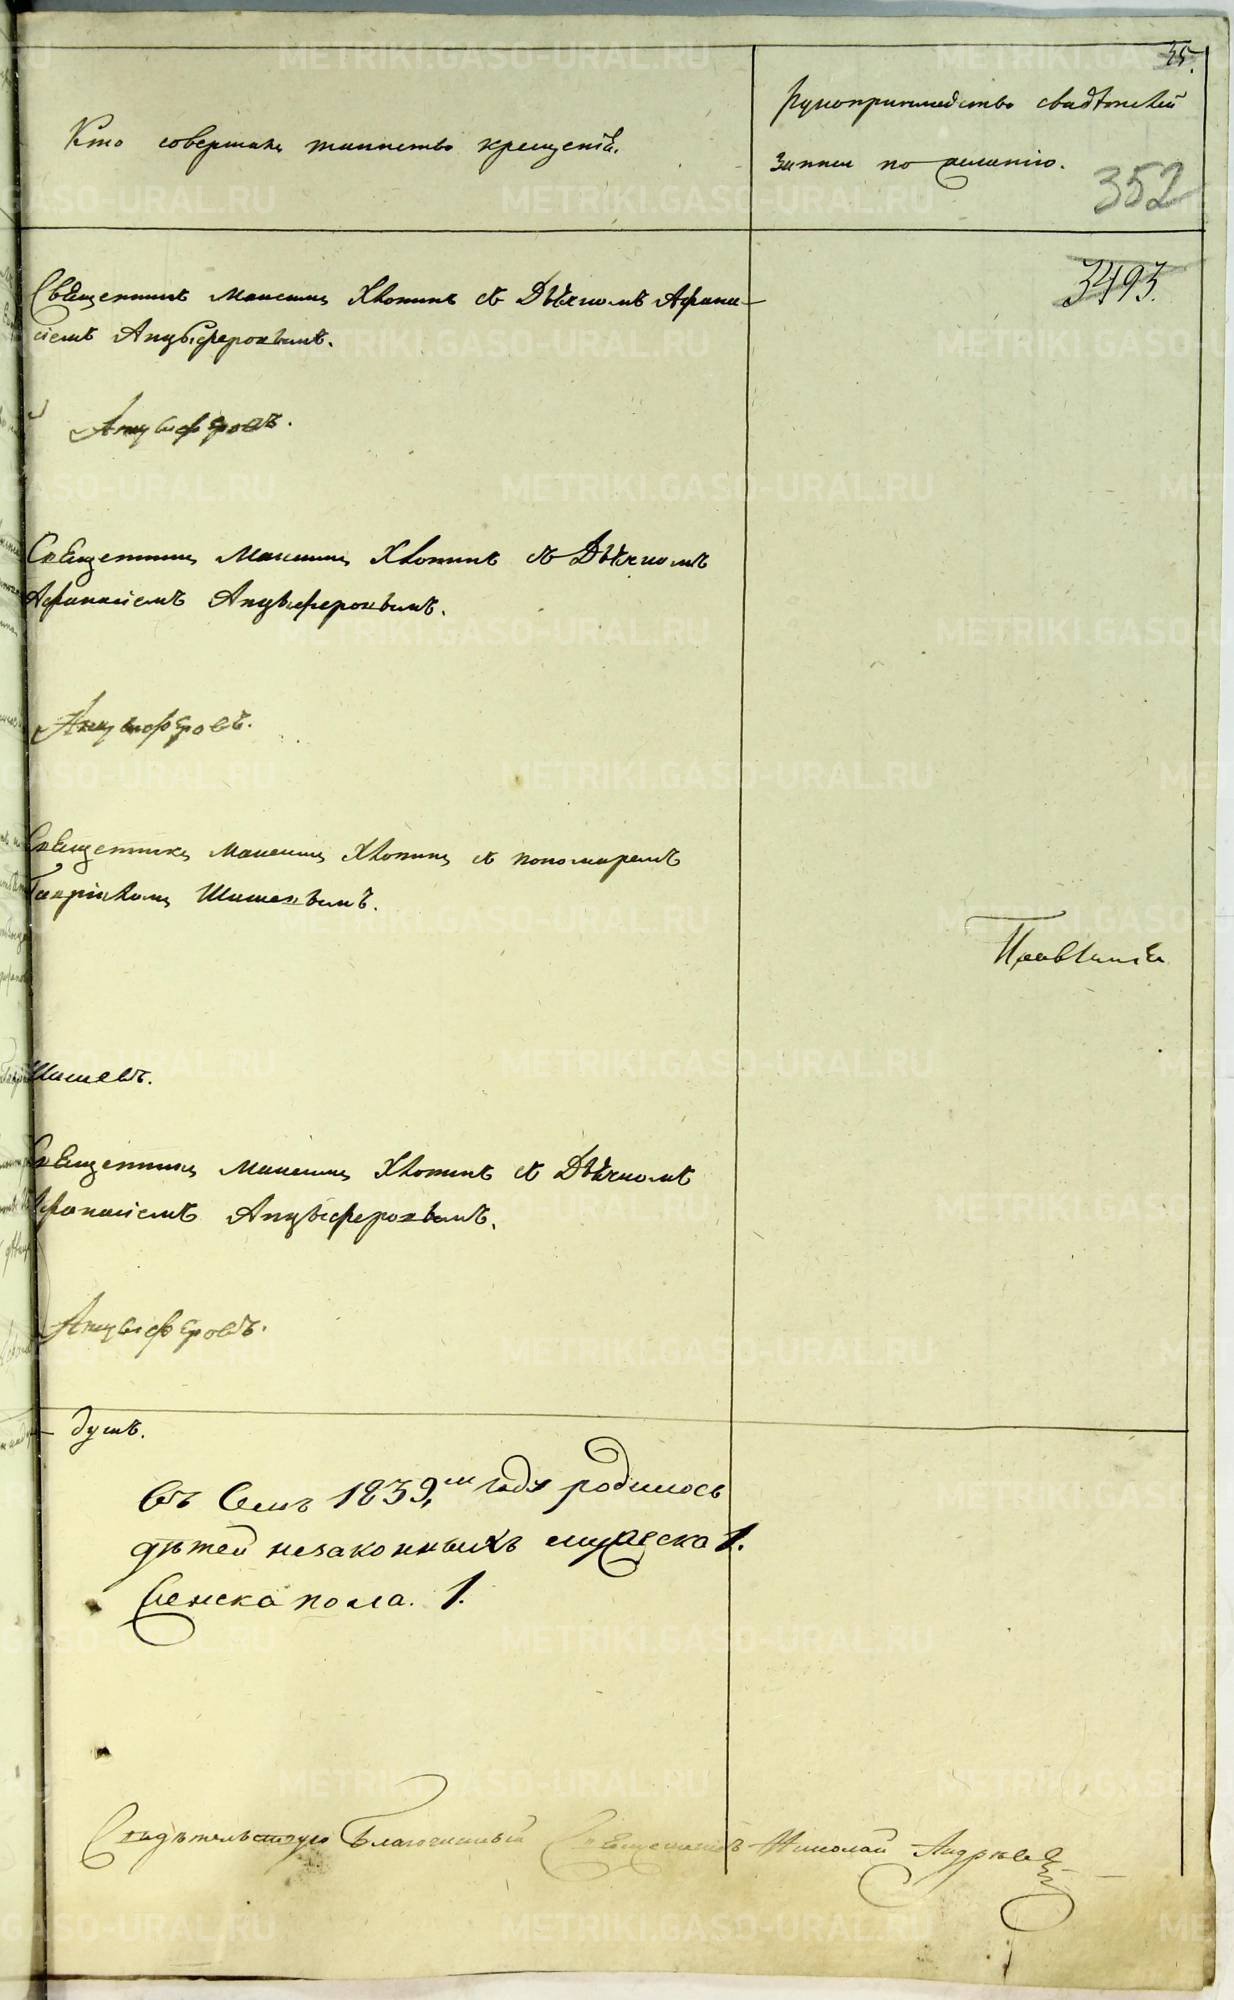 35.
Кто совершалъ таинство крещенія.
Рукоприкладство свидѣтелей
записи по желанію.
352
3493.
Священникъ Максимъ Хлопинъ съ Дьячкомъ Афана-
сіемъ Анцыферовымъ.
Анцыферовъ.
Священникъ Максимъ Хлопинъ съ Дьячкомъ
Афанасіемъ Анцыферовымъ.
Анцыферовъ.
Священникъ Максимъ Хлопинъ съ пономаремъ
Гавріиломъ Шишевымъ.
Шишевъ.
Священникъ Максимъ Хлопинъ съ Дьячкомъ
Афанасіемъ Анцыферовымъ.
Анцыферовъ.
душъ.
Въ семъ 1839,мъ годѣ родилось
дѣтей незаконныхъ мужеска 1.
Женска пола. 1.
Свидѣтельствую Благочинный Священникъ Николай Андреев
METRIKI.GASO-URAL.RU